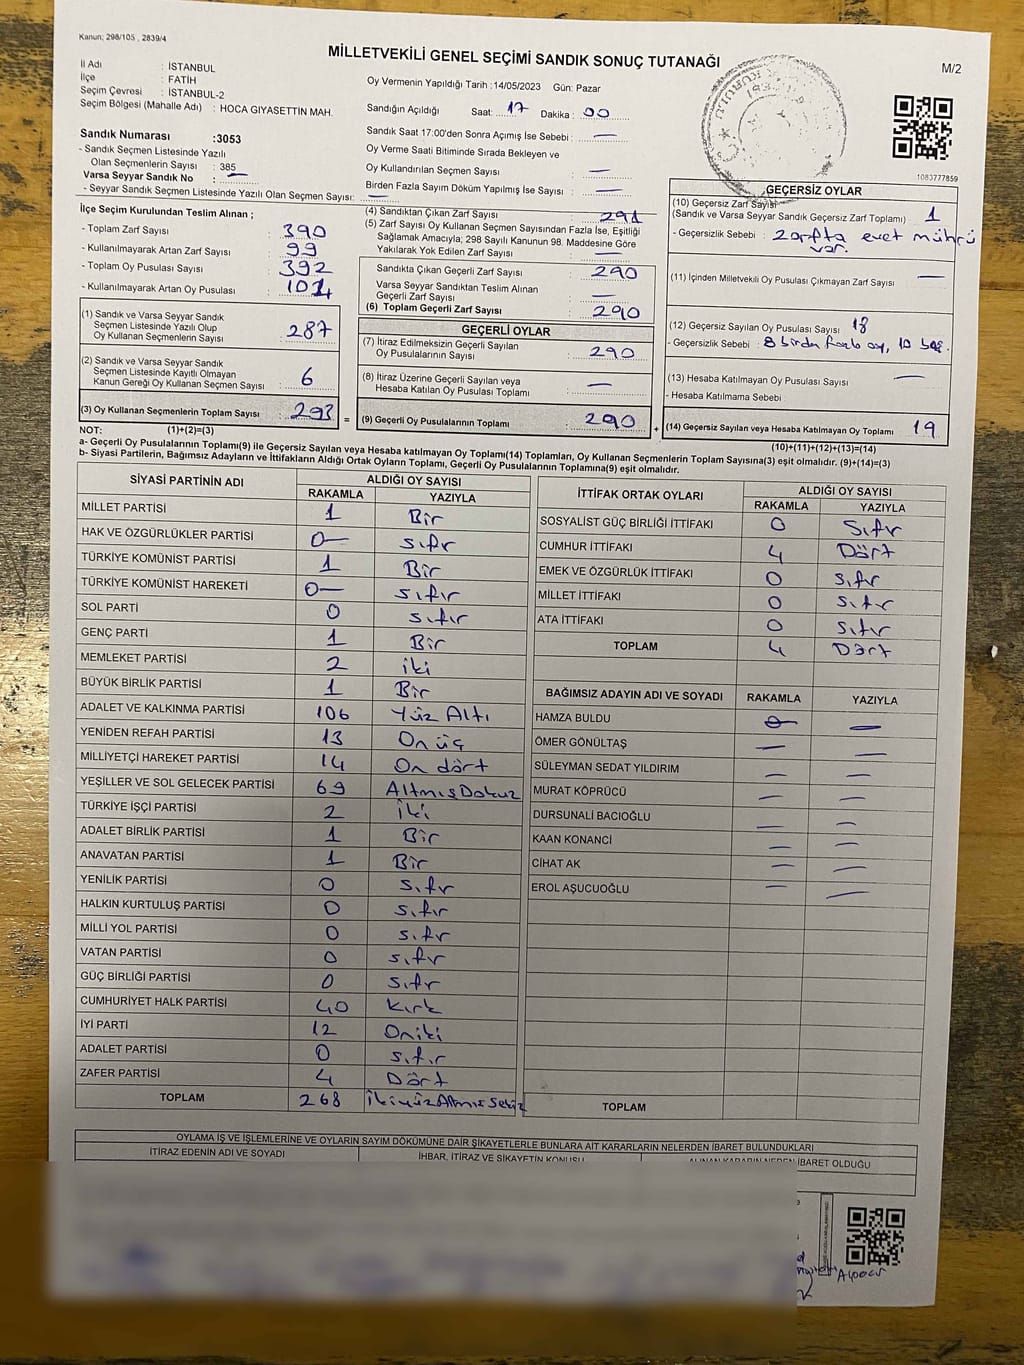 Kanun: 298/105 , 2839/4
MİLLETVEKİLİ GENEL SEÇİMİ SANDIK SONUÇ TUTANAĞI
M/2
İl Adı : İSTANBUL
İlçe : FATİH
Seçim Çevresi : İSTANBUL-2
Seçim Bölgesi (Mahalle Adı) : HOCA GIYASETTİN MAH.
Sandık Numarası :3053
- Sandık Seçmen Listesinde Yazılı
Olan Seçmenlerin Sayısı : 385
Varsa Seyyar Sandık No : —
- Seyyar Sandık Seçmen Listesinde Yazılı Olan Seçmen Sayısı: —
Oy Vermenin Yapıldığı Tarih :14/05/2023 Gün: Pazar
Sandığın Açıldığı Saat: 17 Dakika : 00
Sandık Saat 17:00'den Sonra Açımış İse Sebebi : —
Oy Verme Saati Bitiminde Sırada Bekleyen ve
Oy Kullandırılan Seçmen Sayısı : —
Birden Fazla Sayım Döküm Yapılmış İse Sayısı : —
1083777859
İlçe Seçim Kurulundan Teslim Alınan ;
- Toplam Zarf Sayısı : 390
- Kullanılmayarak Artan Zarf Sayısı : 99
- Toplam Oy Pusulası Sayısı : 392
- Kullanılmayarak Artan Oy Pusulası : 101
(1) Sandık ve Varsa Seyyar Sandık
Seçmen Listesinde Yazılı Olup
Oy Kullanan Seçmenlerin Sayısı : 287
(2) Sandık ve Varsa Seyyar Sandık
Seçmen Listesinde Kayıtlı Olmayan
Kanun Gereği Oy Kullanan Seçmen Sayısı : 6
(3) Oy Kullanan Seçmenlerin Toplam Sayısı : 293 =
(4) Sandıktan Çıkan Zarf Sayısı : 291
(5) Zarf Sayısı Oy Kullanan Seçmen Sayısından Fazla İse, Eşitliği
Sağlamak Amacıyla; 298 Sayılı Kanunun 98. Maddesine Göre
Yakılarak Yok Edilen Zarf Sayısı : —
Sandıkta Çıkan Geçerli Zarf Sayısı : 290
Varsa Seyyar Sandıktan Teslim Alınan
Geçerli Zarf Sayısı : —
(6) Toplam Geçerli Zarf Sayısı : 290
GEÇERLİ OYLAR
(7) İtiraz Edilmeksizin Geçerli Sayılan
Oy Pusulalarının Sayısı : 290
(8) İtiraz Üzerine Geçerli Sayılan veya
Hesaba Katılan Oy Pusulası Toplamı : —
(9) Geçerli Oy Pusulalarının Toplamı : 290 +
GEÇERSİZ OYLAR
(10) Geçersiz Zarf Sayısı
(Sandık ve Varsa Seyyar Sandık Geçersiz Zarf Toplamı) : 1
- Geçersizlik Sebebi : zarfta evet mührü
var.
(11) İçinden Milletvekili Oy Pusulası Çıkmayan Zarf Sayısı : —
(12) Geçersiz Sayılan Oy Pusulası Sayısı : 18
- Geçersizlik Sebebi : 8 birden fazla oy, 10 boş.
(13) Hesaba Katılmayan Oy Pusulası Sayısı : —
- Hesaba Katılmama Sebebi :
(14) Geçersiz Sayılan veya Hesaba Katılmayan Oy Toplamı : 19
NOT: (1)+(2)=(3) (10)+(11)+(12)+(13)=(14)
a- Geçerli Oy Pusulalarının Toplamı(9) ile Geçersiz Sayılan veya Hesaba katılmayan Oy Toplamı(14) Toplamları, Oy Kullanan Seçmenlerin Toplam Sayısına(3) eşit olmalıdır. (9)+(14)=(3)
b- Siyasi Partilerin, Bağımsız Adayların ve İttifakların Aldığı Ortak Oyların Toplamı, Geçerli Oy Pusulalarının Toplamına(9) eşit olmalıdır.
SİYASİ PARTİNİN ADI ALDIĞI OY SAYISI
RAKAMLA YAZIYLA
MİLLET PARTİSİ 1 Bir
HAK VE ÖZGÜRLÜKLER PARTİSİ 0— sıfır
TÜRKİYE KOMÜNİST PARTİSİ 1 Bir
TÜRKİYE KOMÜNİST HAREKETİ 0— sıfır
SOL PARTİ 0 sıfır
GENÇ PARTİ 1 Bir
MEMLEKET PARTİSİ 2 iki
BÜYÜK BİRLİK PARTİSİ 1 Bir
ADALET VE KALKINMA PARTİSİ 106 Yüz Altı
YENİDEN REFAH PARTİSİ 13 On üç
MİLLİYETÇİ HAREKET PARTİSİ 14 On dört
YEŞİLLER VE SOL GELECEK PARTİSİ 69 Altmış Dokuz
TÜRKİYE İŞÇİ PARTİSİ 2 İki
ADALET BİRLİK PARTİSİ 1 Bir
ANAVATAN PARTİSİ 1 Bir
YENİLİK PARTİSİ 0 sıfır
HALKIN KURTULUŞ PARTİSİ 0 sıfır
MİLLİ YOL PARTİSİ 0 sıfır
VATAN PARTİSİ 0 sıfır
GÜÇ BİRLİĞİ PARTİSİ 0 sıfır
CUMHURİYET HALK PARTİSİ 40 Kırk
İYİ PARTİ 12 Oniki
ADALET PARTİSİ 0 sıfır
ZAFER PARTİSİ 4 Dört
TOPLAM 268 İkiyüzAltmışSekiz
İTTİFAK ORTAK OYLARI ALDIĞI OY SAYISI
RAKAMLA YAZIYLA
SOSYALİST GÜÇ BİRLİĞİ İTTİFAKI 0 Sıfır
CUMHUR İTTİFAKI 4 Dört
EMEK VE ÖZGÜRLÜK İTTİFAKI 0 sıfır
MİLLET İTTİFAKI 0 Sıfır
ATA İTTİFAKI 0 Sıfır
TOPLAM 4 Dört
BAĞIMSIZ ADAYIN ADI VE SOYADI RAKAMLA YAZIYLA
HAMZA BULDU 0 —
ÖMER GÖNÜLTAŞ — —
SÜLEYMAN SEDAT YILDIRIM — —
MURAT KÖPRÜCÜ — —
DURSUNALİ BACIOĞLU — —
KAAN KONANCİ — —
CİHAT AK — —
EROL AŞUCUOĞLU — —
TOPLAM
OYLAMA İŞ VE İŞLEMLERİNE VE OYLARIN SAYIM DÖKÜMÜNE DAİR ŞİKAYETLERLE BUNLARA AİT KARARLARIN NELERDEN İBARET BULUNDUKLARI
İTİRAZ EDENİN ADI VE SOYADI İHBAR, İTİRAZ VE ŞİKAYETİN KONUSU ALINAN KARARIN NEDEN İBARET OLDUĞU